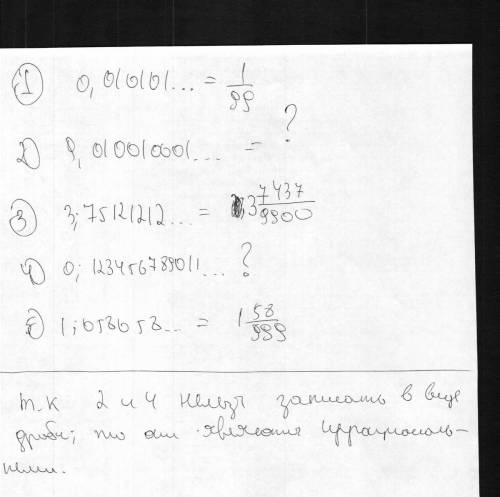 1 0,010101... = 1/99
2) 0,010010001... = ?
3 3,75121212... = 3 7437/9900
4) 0,1234567891011... ?
5 1,058058... = 1 58/999
т.к 2 и 4 нельзя записать в виде
дроби, то они являются иррациональ-
ными.